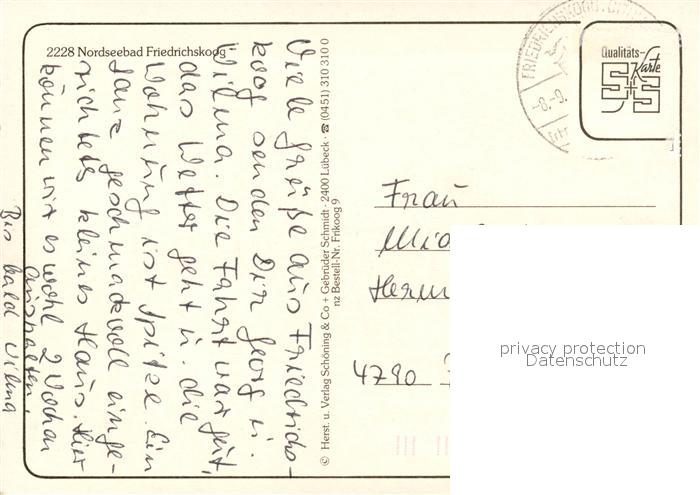 2228 Nordseebad Friedrichskoog
Viele Grüße aus Friedrichs-
koog senden Dir Georg u.
Wilma. Die Fahrt war gut,
das Wetter geht u. die
Wohnung ist spitze. Ein
ganz geschmackvoll einge-
richtetes kleines Haus. Hier
können wir es wohl 2 Wochen
aushalten.
Bis bald Wilma
© Herst. u. Verlag Schöning & Co + Gebrüder Schmidt · 2400 Lübeck · ☎ (0451) 310 310 0
nz Bestell-Nr. Frikoog 9
FRIEDRICHSKOOG
-8.-9.
Qualitäts-
Karte
S+S
Frau
4790
privacy protection
Datenschutz